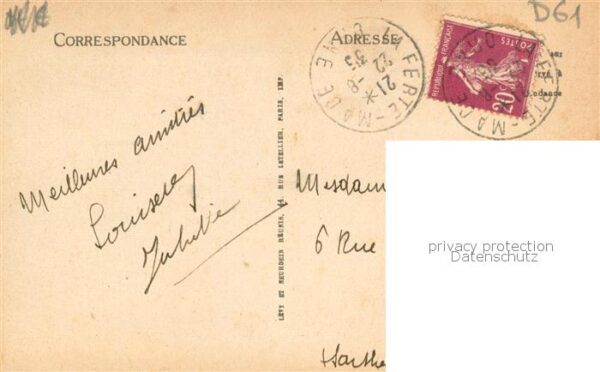 D61
CORRESPONDANCE
ADRESSE
LA FERTE-MACE
ORNE
21 -8
22 35
POSTES
REPUBLIQUE FRANÇAISE
20c
LA FERTE-MACE
Meilleures amitiés
Louise
Juliette
LÉVY ET NEURDEIN RÉUNIS, 44, RUE LETELLIER, PARIS, IMP.
Mesdam
6 Rue
Sarthe
privacy protection
Datenschutz